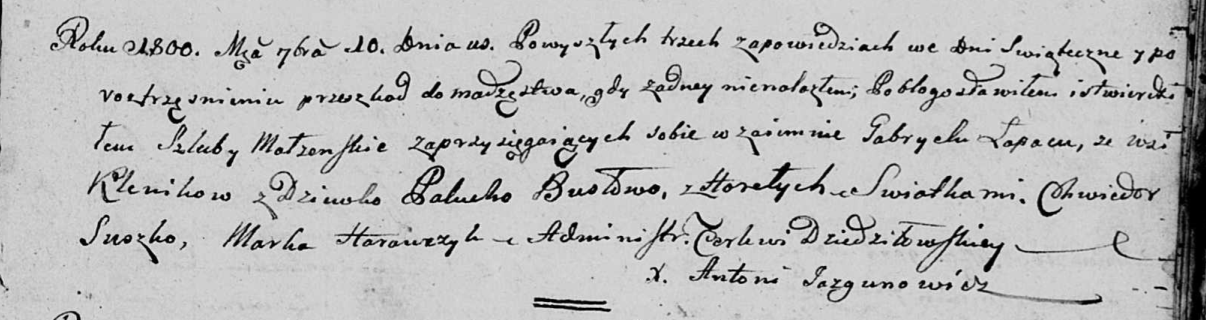 Roku 1800. Mca 7bra 10. Dnia us. Powyszłych trzech zapowiedziach we dni Swiąteczne y po
roztrzęsnieniu przeszkod do madzęstwa, gdy żadney nienalazłem; Pobłogosławiłem i stwierdzi
łem Szluby Małzenskie zaprzysięgaiących sobie wzaiemnie Gabryelu Łapacu, ze wsi
Klenikow z Dziewko Palucho Busłowo, z Horełych - Swiatkami. Chwiedor
Suszko, Marka Harawczyk - Administr. Cerkwi Dziedziłowskiey
X. Antoni Jazgunowicz